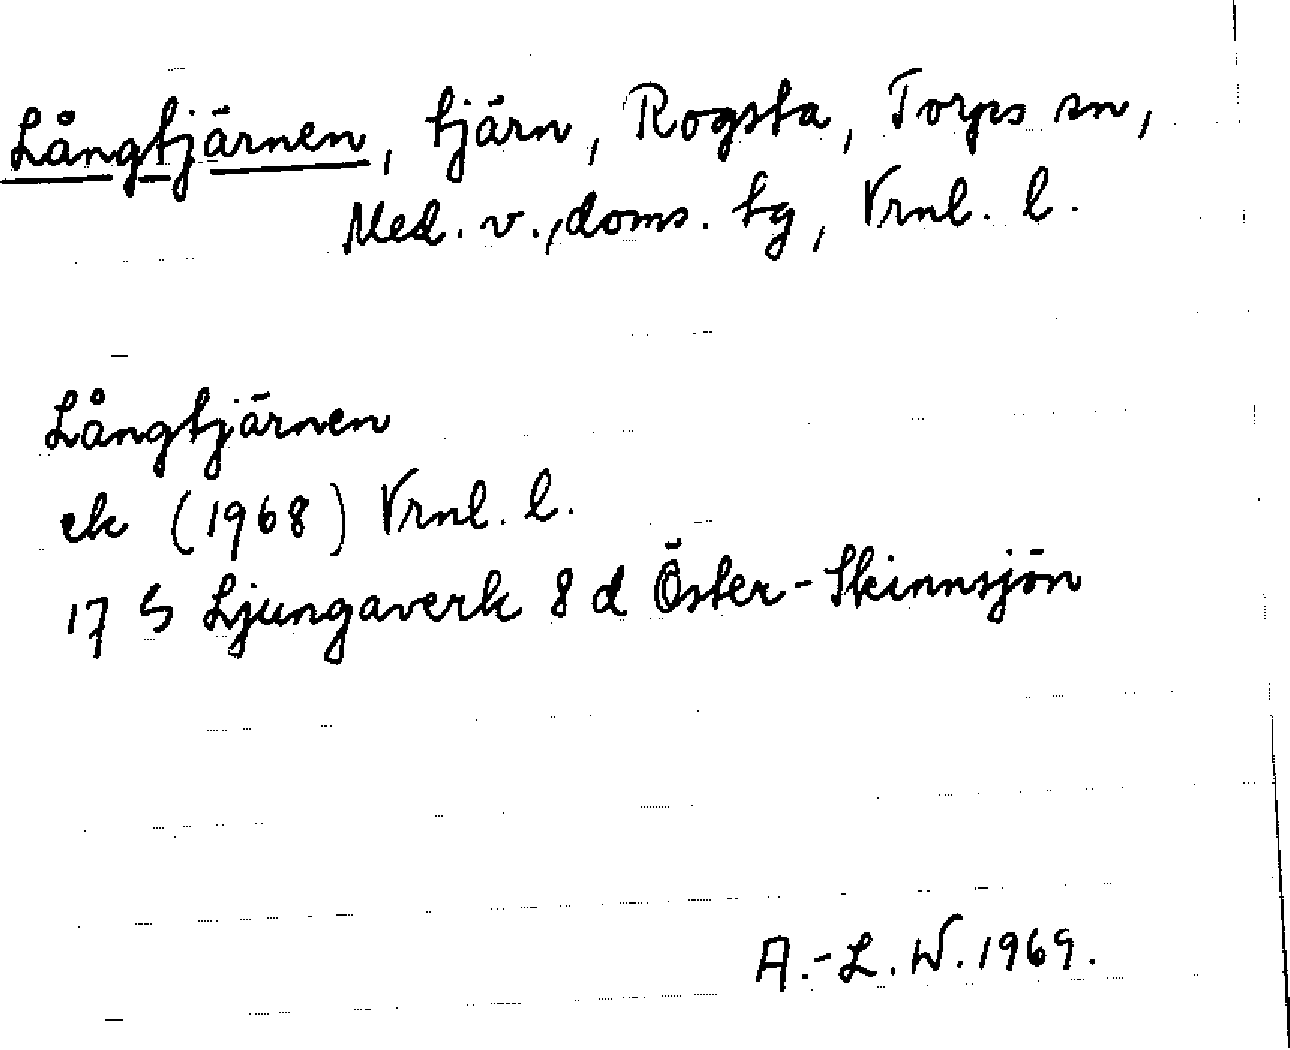 Långtjärnen, tjärn, Rogsta, Torps sn,
Med. v., doms. tg, Vrnl. l.
Långtjärnen
ek (1968) Vrnl. l.
17 S Ljungaverk 8 d Öster-Skinnsjön
A.-L. W. 1969.